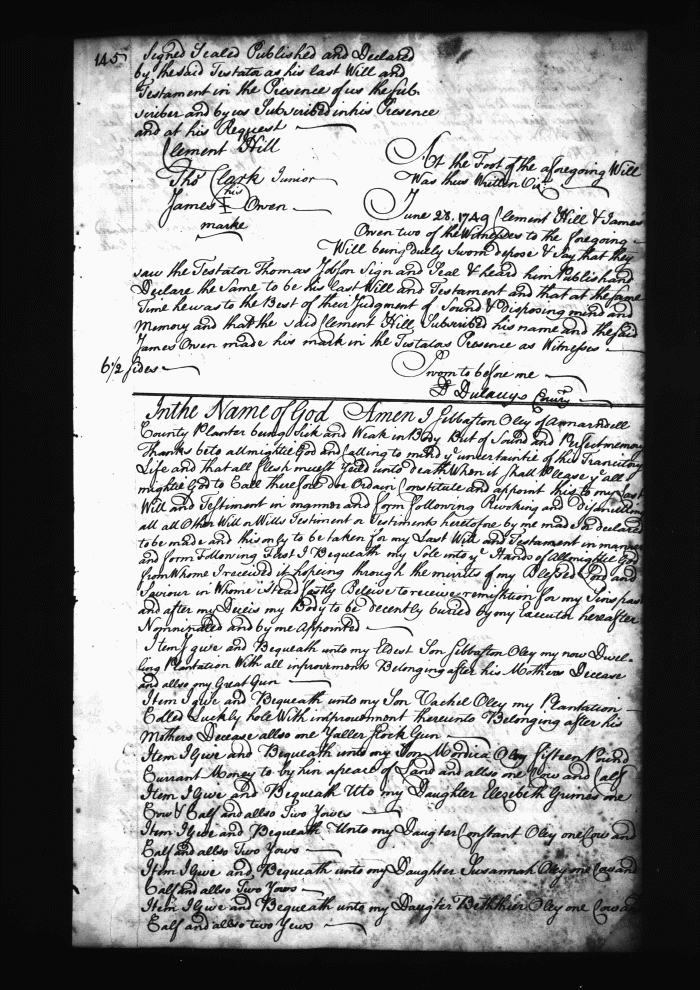 145
Signed Sealed Published and Declared
by the said Testata as his last Will and
Testament in the Presence of us the Sub-
scriber and by us Subscribed in his Presence
and at his Request
Clement Hill
Thos Clark Junior
his
James I Owen
marke
At the Foot of the aforegoing Will
Was thus Written Viz
June 28. 1749 Clement Hill & James
Owen two of the Witnesses to the foregoing
Will being duely Sworn depose & Say that they
saw the Testator Thomas Jobson Sign and Seal & heard him Publish and
Declare the Same to be his last Will and Testament and that at the same
Time he was to the Best of their Judgment of Sound & disposing mind and
Memory and that the said Clement Hill Subscribed his name and the said
James Owen made his mark in the Testators Presence as Witnesses
6 1/2 sides
Sworn to before me
D Dulanys Comry
In the Name of God Amen I Sebbaston Oley of Annarndell
County Planter being Sick and Weak in Body But of Sound and Perfect memory
Thanks be to allmightie God and Calling to mind ye uncertaintie of this Trancitory
Life and that all flesh must Yeild unto death When it shall Please ye all
mightie God to Call therefore Do Ordain Constitute and appoint this to my Last
Will and Testiment in manner and form following Revoking and
all all Other Will or Wills Testiment or Testiments heretofore by me made & declared
to be made and this only to be taken for my Last Will and Testament in manner
and form Following First I Bequeath my Sole unto ye Hands of Allmightie God
from Whome I received it hopeing through the merrits of my Blessed Lord and
Saviour in Whome I stead fastly Beleive to receive remistion for my Sins past
and after my Deceis my Body to be decently buried by my Executor hereafter
Nominated and by me Appointed
Item I give and Bequeath unto my Eldest Son Sebbaston Oley my now Dwel-
ling Plantation With all improvement Belonging after his Mothers Decease
and allso my Great Gun
Item I give and Bequeath unto my Son Vachel Oley my Plantation
Called Luckly hole With improvement thereunto Belonging after his
Mothers Decease allso one Yaller Stock Gun
Item I Give and Bequeath unto my Son Mordica Oley fifteen Pound
Currant Money to by him a peace of Land and allso one Cow and Calf
Item I Give and Bequeath Uto my Daughter Elezibeth Grimes one
Cow & Calf and allso Two Yowes
Item I Give and Bequeath Unto my Daugter Constant Oley one Cow and
Calf and allso Two Yows
Item I Give and Bequeath unto my Daughter Susannah Oley one Cow and
Calf and allso Two Yows
Item I Give and Bequeath unto my Daugter Beththier Oley one Cow and
Calf and allso two Yews